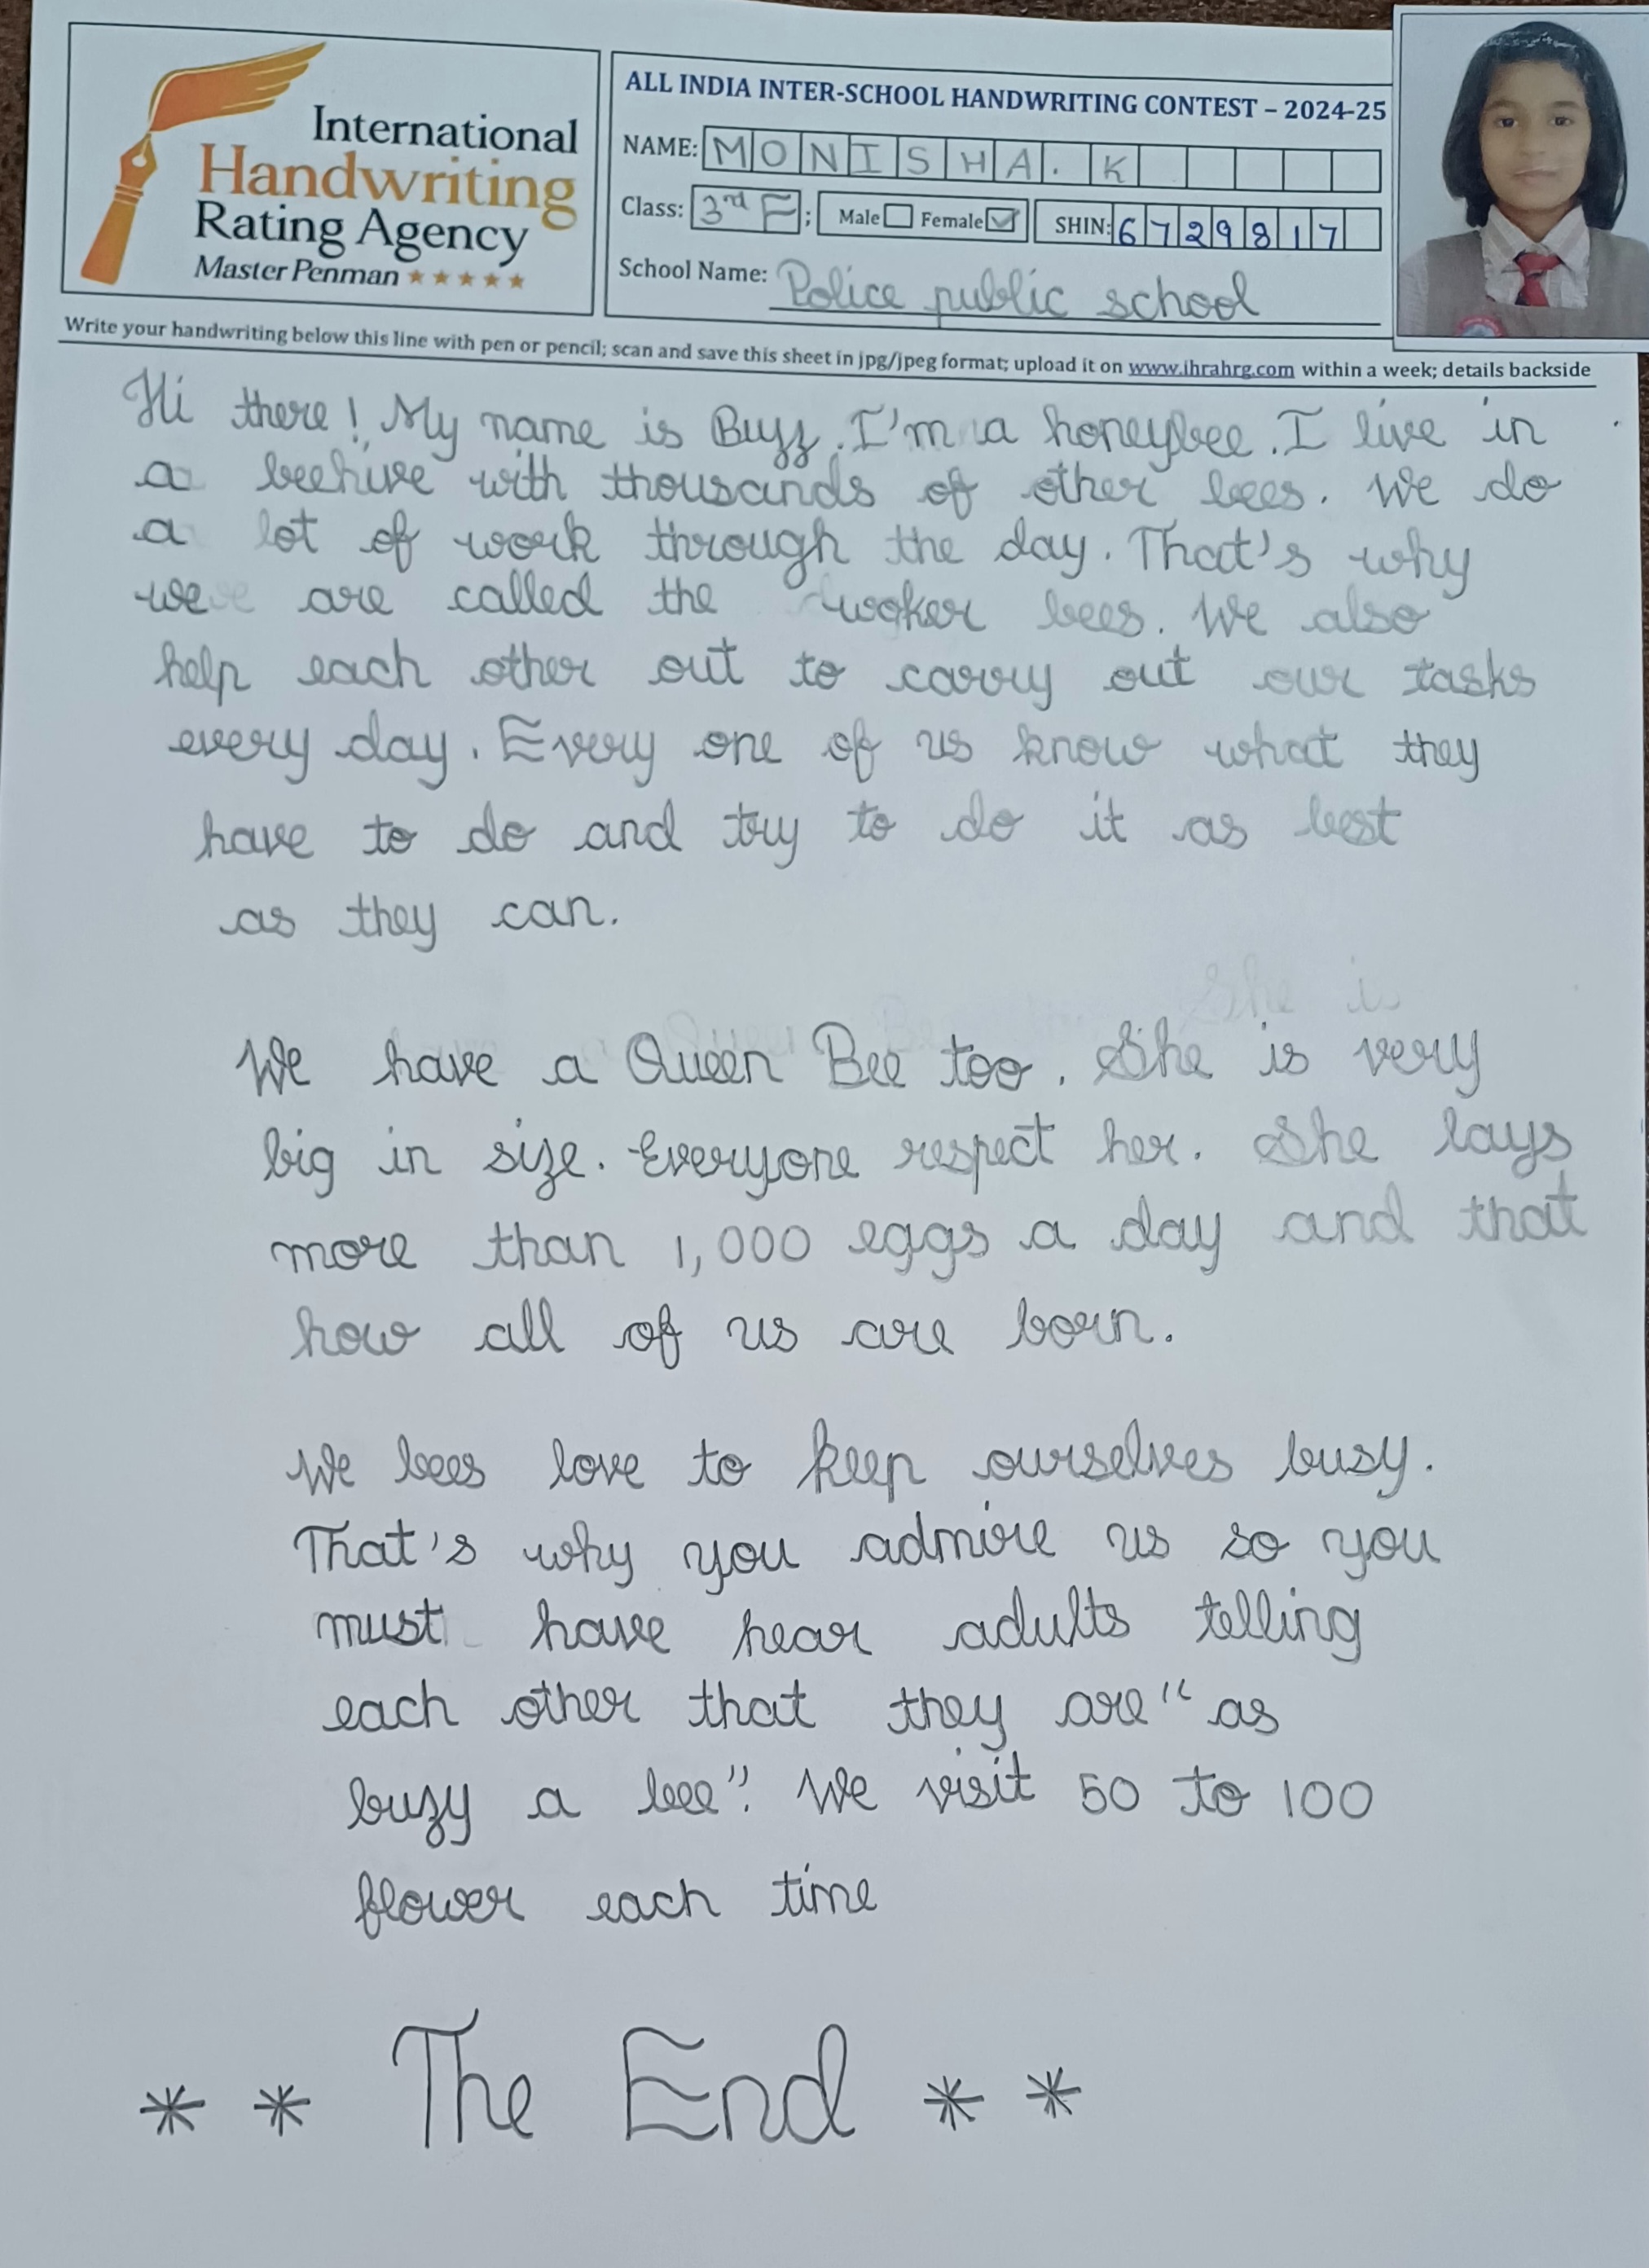 International
Handwriting
Rating Agency
Master Penman ★★★★★
ALL INDIA INTER-SCHOOL HANDWRITING CONTEST – 2024-25
NAME: MONISHA. K
Class: 3rd E ; Male Female ✓ SHIN: 6729817
School Name: Police public school
Write your handwriting below this line with pen or pencil; scan and save this sheet in jpg/jpeg format; upload it on www.ihrahrg.com within a week; details backside
Hi there! My name is Buzz. I'm a honeybee. I live in
a beehive with thousands of other bees. We do
a lot of work through the day. That's why
we are called the woker bees. We also
help each other out to carry out our tasks
every day. Every one of us know what they
have to do and try to do it as best
as they can.
She i
We have a Queen Bee too. She is very
big in size. Everyone respect her. She lays
more than 1,000 eggs a day and that
how all of us are born.
We bees love to keep ourselves busy.
That's why you admire us so you
must have hear adults telling
each other that they are "as
buzy a bee". We visit 50 to 100
flower each time
* * The End * *